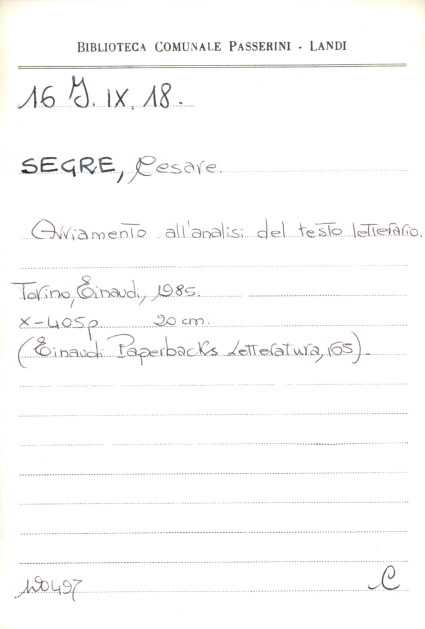 BIBLIOTECA COMUNALE PASSERINI - LANDI
16 J. IX. 18.
SEGRE, Cesare.
Avviamento all'analisi del testo letterario.
Torino, Einaudi, 1985.
X-405p 20 cm.
(Einaudi Paperbacks Letteratura, 165).
C